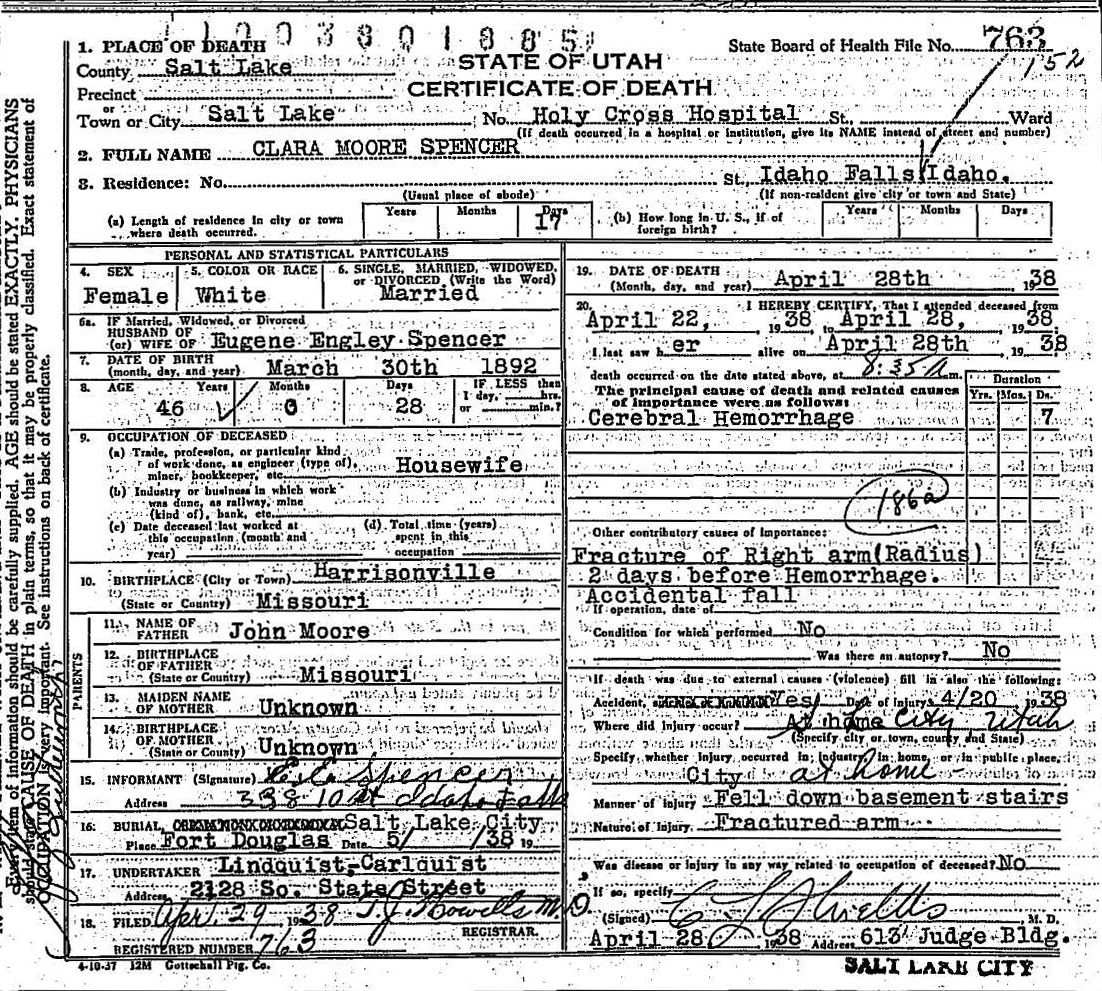 11003801885
1. PLACE OF DEATH
State Board of Health File No. 763
152
County Salt Lake
STATE OF UTAH
Precinct
CERTIFICATE OF DEATH
or
Town or City Salt Lake No. Holy Cross Hospital St. Ward
(If death occurred in a hospital or institution, give its NAME instead of street and number)
2. FULL NAME CLARA MOORE SPENCER
3. Residence: No. St. Idaho Falls Idaho.
(Usual place of abode) (If non-resident give city or town and State)
(a) Length of residence in city or town where death occurred. Years Months Days 17
(b) How long in U. S., if of foreign birth? Years Months Days
PERSONAL AND STATISTICAL PARTICULARS
4. SEX Female
5. COLOR OR RACE White
6. SINGLE, MARRIED, WIDOWED, or DIVORCED, (Write the Word) Married
6a. IF Married, Widowed, or Divorced
HUSBAND OF
(or) WIFE OF Eugene Engley Spencer
7. DATE OF BIRTH
(month, day, and year) March 30th 1892
8. AGE Years Months Days IF LESS than
1 day, hrs.
or min.?
46 0 28
9. OCCUPATION OF DECEASED
(a) Trade, profession, or particular kind
of work done, as engineer (type of),
miner, bookkeeper, etc. Housewife
(b) Industry or business in which work
was done, as railway, mine
(kind of), bank, etc.
(c) Date deceased last worked at
this occupation (month and
year)
(d) Total time (years)
spent in this
occupation
10. BIRTHPLACE (City or Town) Harrisonville
(State or Country) Missouri
PARENTS
11. NAME OF
FATHER John Moore
12. BIRTHPLACE
OF FATHER
(State or Country) Missouri
13. MAIDEN NAME
OF MOTHER Unknown
14. BIRTHPLACE
OF MOTHER
(State or Country) Unknown
15. INFORMANT (Signature) E. E. Spencer
Address 338 10 st Idaho Falls
16. BURIAL, Salt Lake City
Place Fort Douglas Date 5/ /38 19
17. UNDERTAKER Lindquist-Carlquist
Address 2128 So. State Street
18. FILED Apr. 29 1938 T. J. Howells M.D.
REGISTRAR.
REGISTERED NUMBER 763
4-10-37 12M Gottschall Ptg. Co.
19. DATE OF DEATH
(Month, day, and year) April 28th 1938
20. I HEREBY CERTIFY, That I attended deceased from
April 22, 1938 to April 28, 1938
I last saw h er alive on April 28th 1938
death occurred on the date stated above, at 8:35 A m.
The principal cause of death and related causes
of importance were as follows:
Duration
Yrs. Mos. Ds.
Cerebral Hemorrhage 7
186a
Other contributory causes of importance:
Fracture of Right arm(Radius)
2 days before Hemorrhage.
Accidental fall
If operation, date of
Condition for which performed No
Was there an autopsy? No
If death was due to external causes (violence) fill in also the following:
Accident, Yes Date of injury 4/20 1938
Where did injury occur? At home City Utah
(Specify city or town, county and State)
Specify whether injury occurred in industry, in home, or in public place.
City at home -
Manner of injury Fell down basement stairs
Nature of Injury Fractured arm
Was disease or injury in any way related to occupation of deceased? No
If so, specify
(Signed) C L Shields M. D.
April 28 1938 Address 613 Judge Bldg.
SALT LAKE CITY
Every item of information should be carefully supplied. AGE should be stated EXACTLY. PHYSICIANS
should state CAUSE OF DEATH in plain terms, so that it may be properly classified. Exact statement of
OCCUPATION is very important. See instructions on back of certificate.